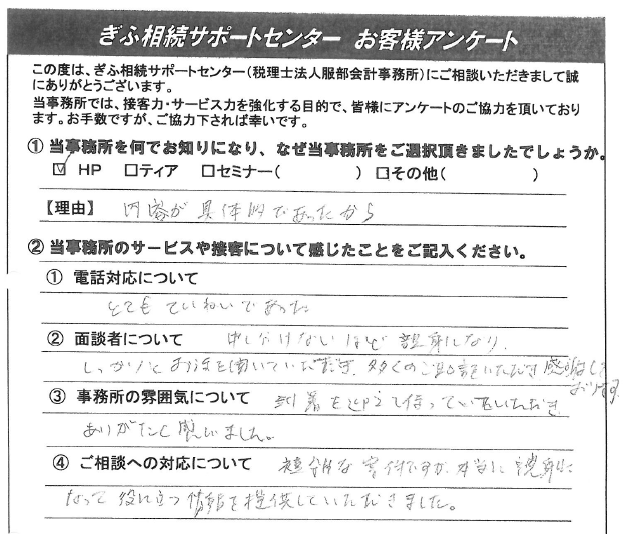 ぎふ相続サポートセンター お客様アンケート
この度は、ぎふ相続サポートセンター(税理士法人服部会計事務所)にご相談いただきまして誠
にありがとうございます。
当事務所では、接客力・サービス力を強化する目的で、皆様にアンケートのご協力を頂いており
ます。お手数ですが、ご協力下されば幸いです。
① 当事務所を何でお知りになり、なぜ当事務所をご選択頂きましたでしょうか。
☑ HP □ティア □セミナー( ) □その他( )
【理由】 内容が具体的であったから
② 当事務所のサービスや接客について感じたことをご記入ください。
① 電話対応について
とてもていねいであった
② 面談者について 申し分けないほど親身になり、
しっかりとお話を聞いていただき、多くのご助言をいただき感謝して
おります
③ 事務所の雰囲気について を迎えて待っていていただき
ありがたく感じました。
④ ご相談への対応について 複雑な案件ですが、本当に親身に
なって役に立つ情報を提供していただきました。